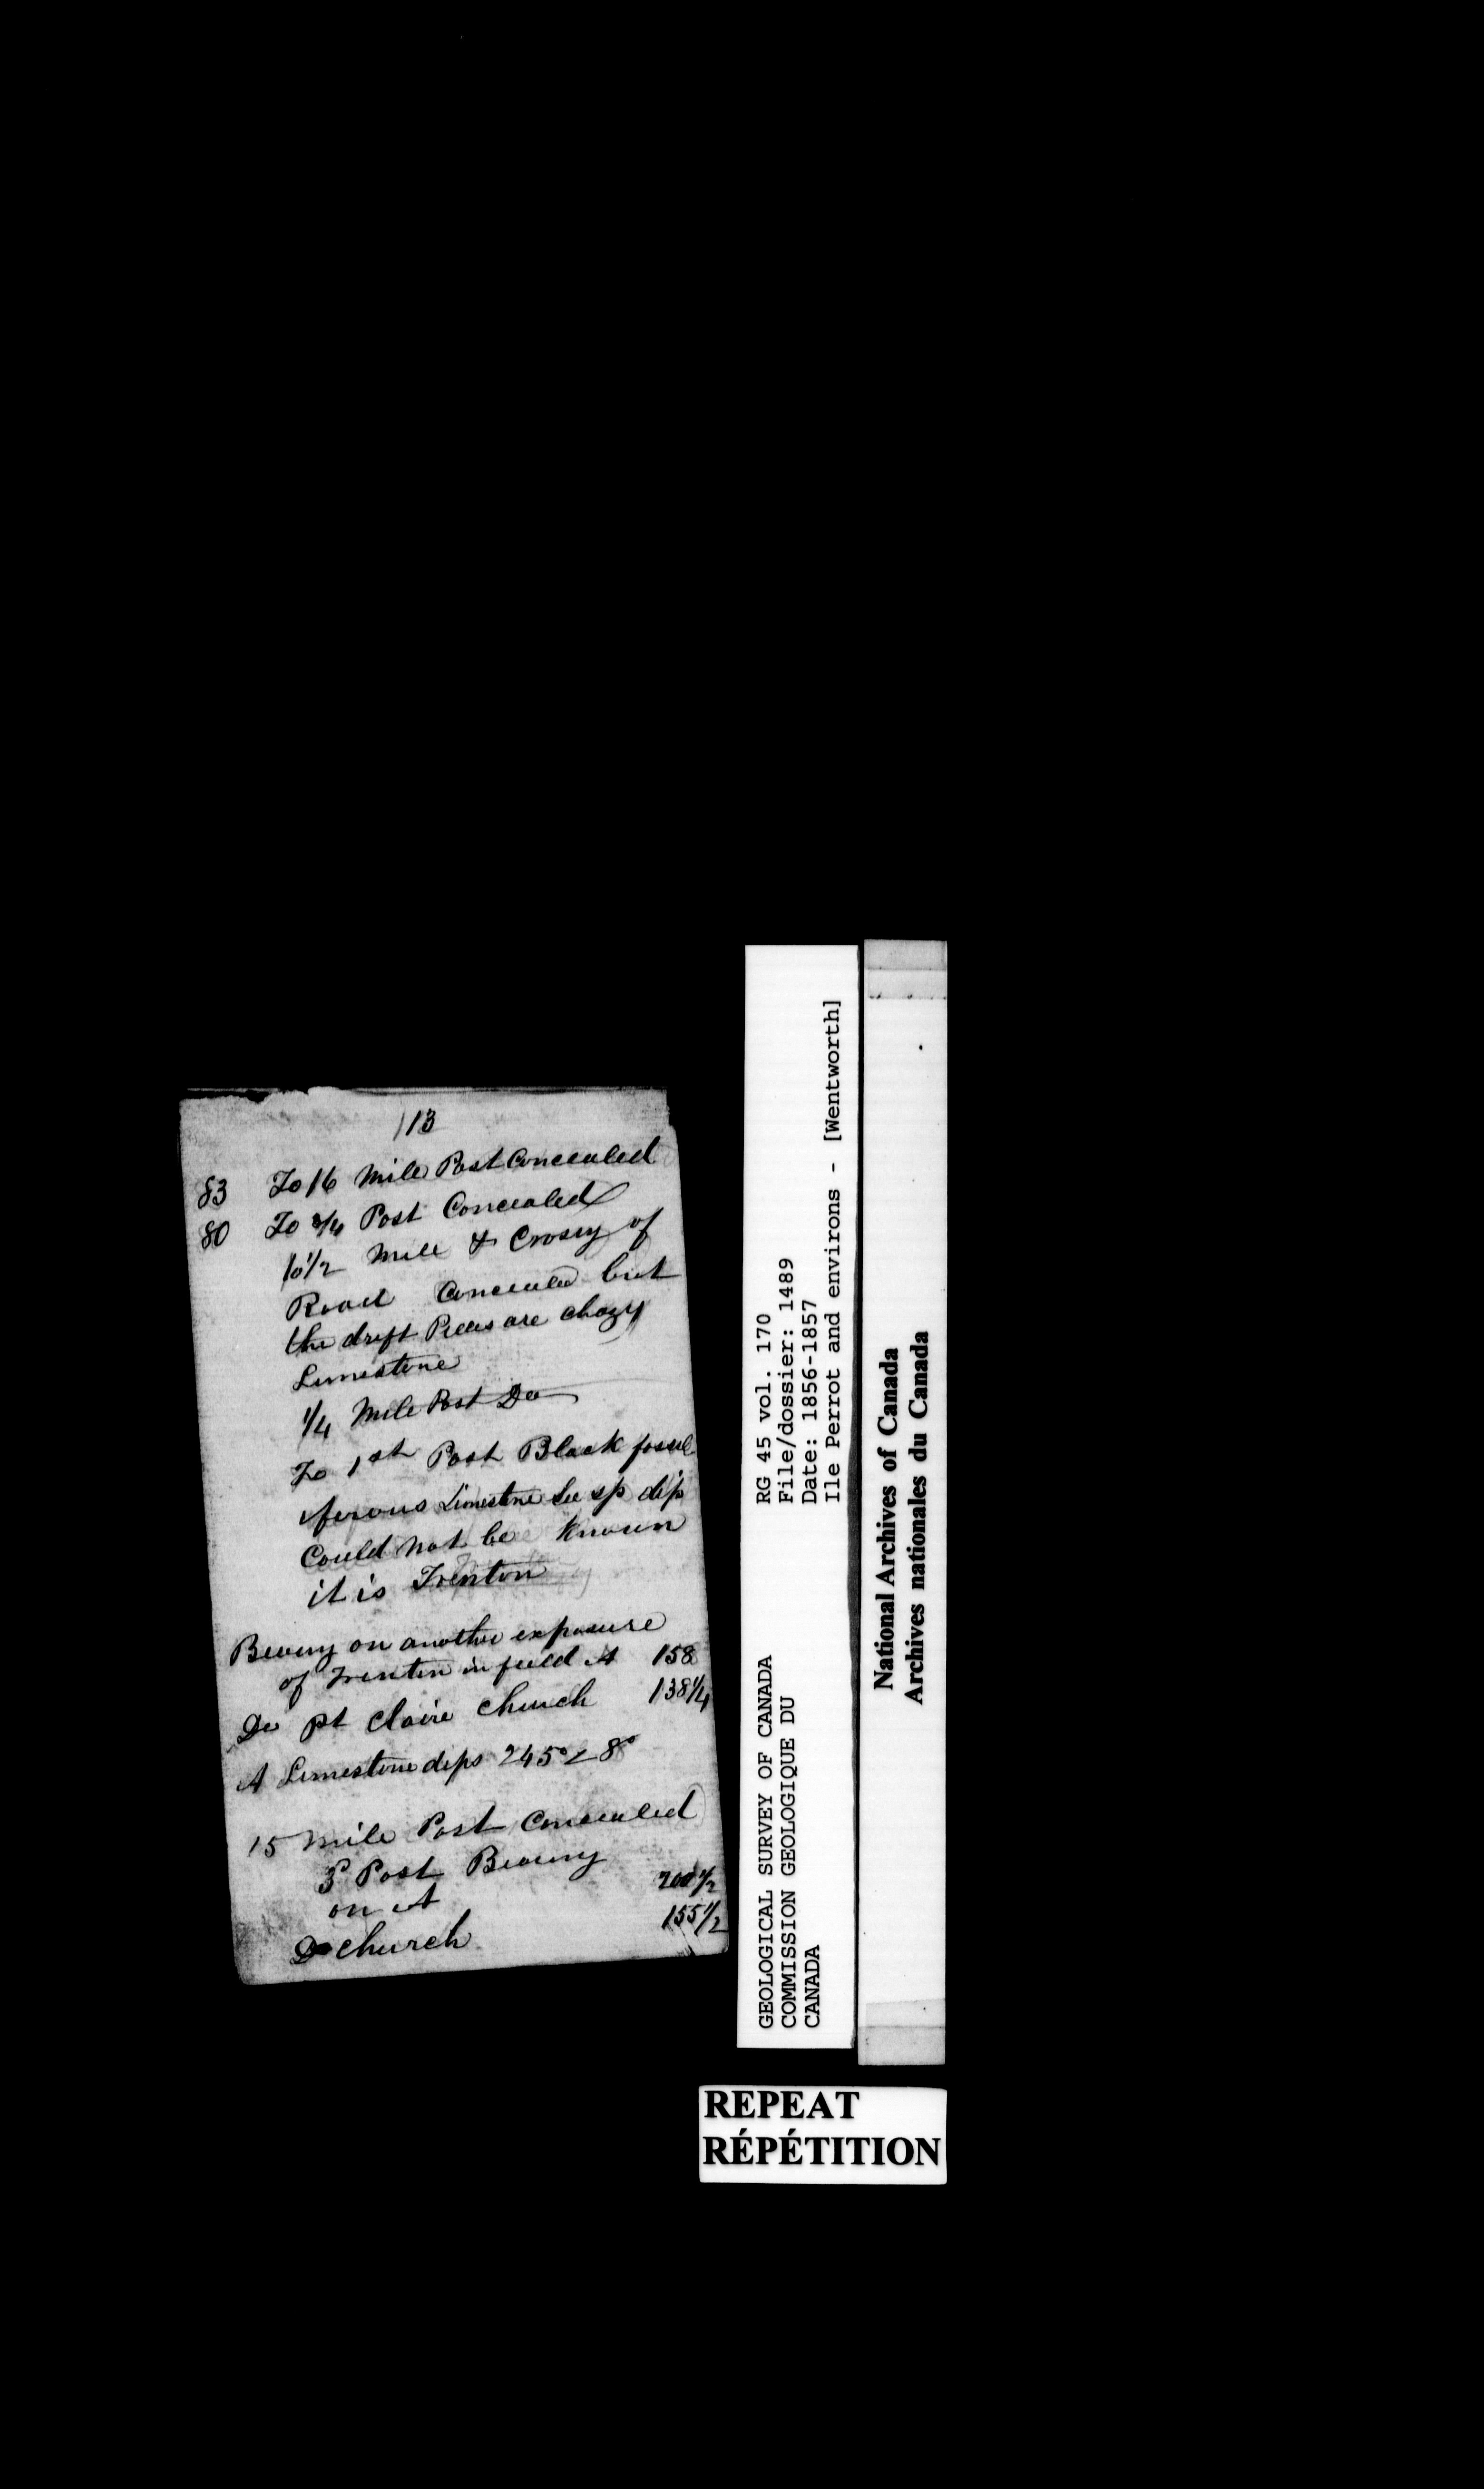 113
83 To 16 Mile Post Concealed
80 To 3/4 Post Concealed
to 1/2 Mile & Crosng of
Road Concealed but
the drift Pieces are chazy
Limestone
1/4 Mile Post Do
To 1st Post Black fossil
iferous Limestone See sp dip
Could not be known
it is Trenton
Bearing on another exposure
of Trenton in field A 158
Do pt Claire Church 138 1/4
A Limestone dips 245° ∠ 8°
15 Mile Post Concealed
3d Post Bearing
on A 200 1/2
Do Church 155 1/2
GEOLOGICAL SURVEY OF CANADA
COMMISSION GEOLOGIQUE DU
CANADA
RG 45 vol. 170
File/dossier: 1489
Date: 1856-1857
Ile Perrot and environs - [Wentworth]
National Archives of Canada
Archives nationales du Canada
REPEAT
RÉPÉTITION